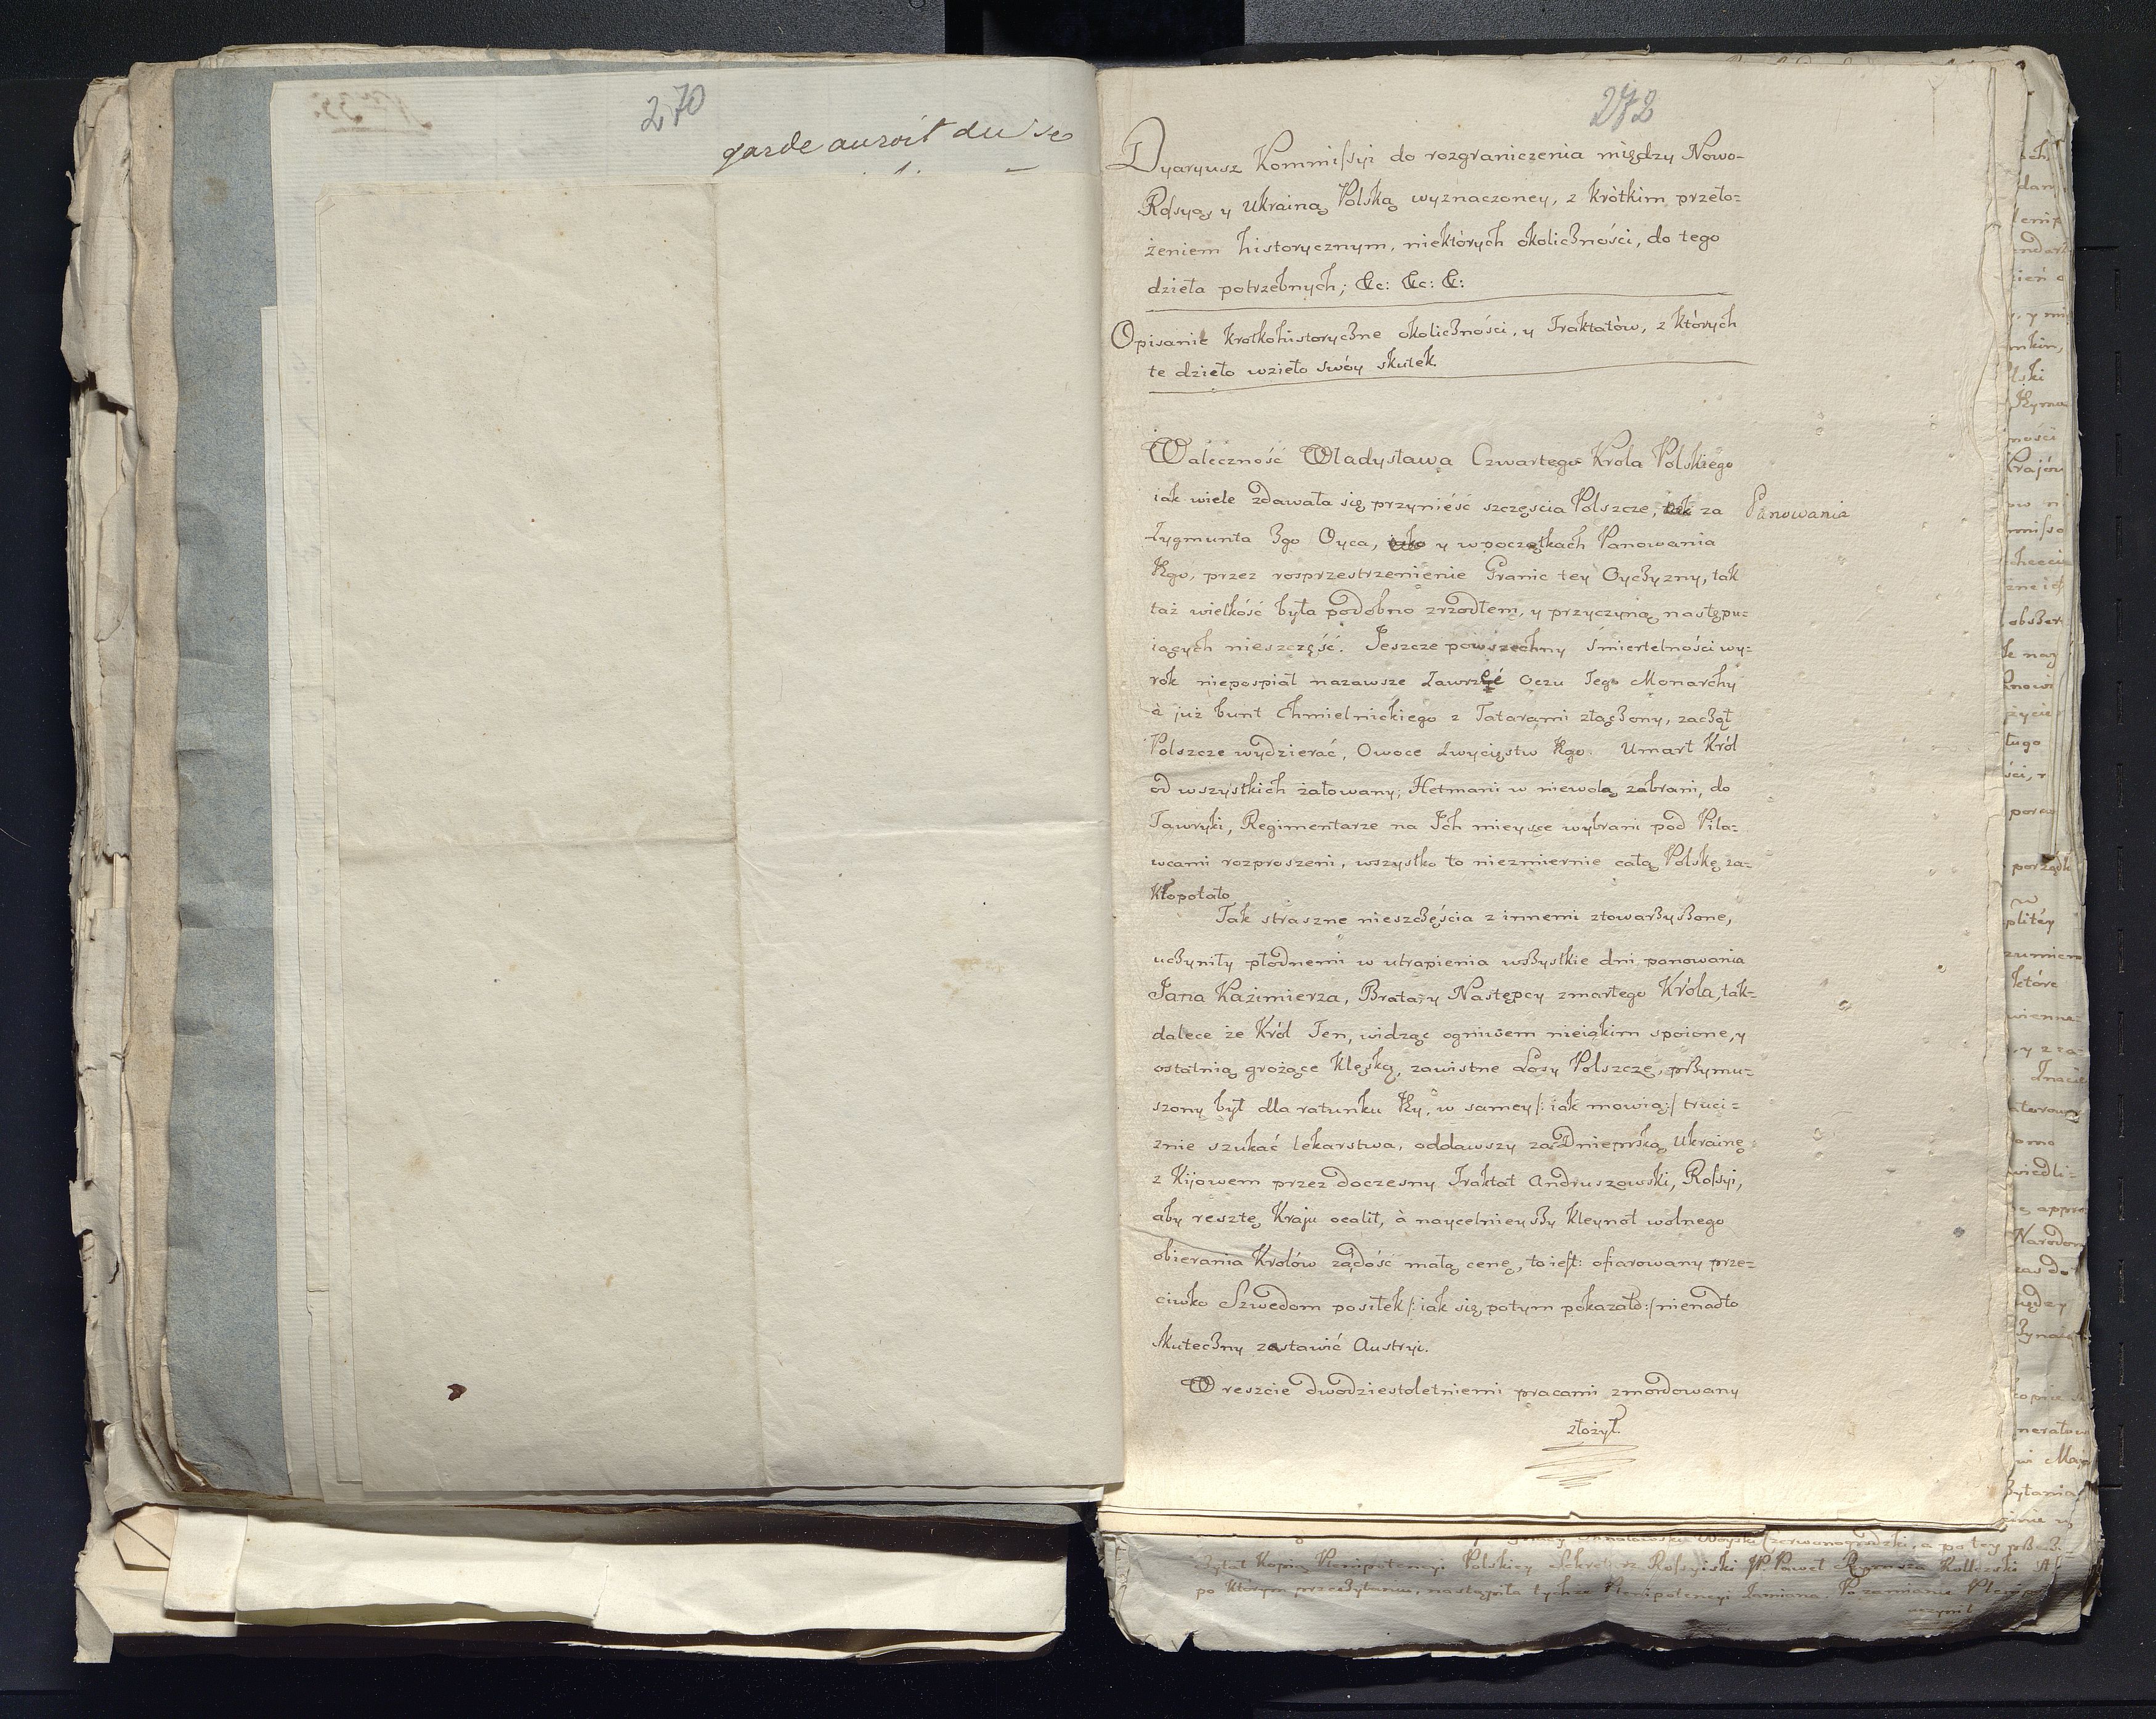 270
garde auroit du se
272
Dyaryusz Kommissyi do rozgraniczenia między Nowo-
Rossyą, y Ukrainą Polską wyznaczoney, z krótkim przeło=
żeniem historycznym, niektórych okoliczności, do tego
dzieła potrzebnych; &c: &c: &:
Opisanie krotkohistoryczne okoliczności, y Traktatów, z których
te dzieło wzieło swóy skutek.
Waleczność Władysława Czwartego Krola Polskiego
iak wiele zdawała się przynieść szczęscia Polszcze, za Panowania
Zygmunta 3go Oyca, y w początkach Panowania
Jego, przez rosprzestrzenienie Granic tey Oyczyzny, tak
taż wielkość była podobno zrzodłem, y przyczyną następu=
iących nieszczęść. Jeszcze powszechny śmiertelności wy=
rok niepospiał nazawsze zawrzeć oczu Tego Monarchy
à już bunt Chmielnickiego z Tatarami złączony, zaczął
Polszcze wydzierać, Owoce zwycięstw Jego. Umarł Król
od wszystkich żałowany; Hetmani w niewolą zabrani, do
Tawryki, Regimentarze na Ich mieysce wybrani pod Pila=
wcami rozproszeni, wszystko to niezmiernie całą Polskę za=
kłopotało
Tak straszne nieszczęścia z innemi ztowarzyszone,
uczyniły płodnemi w utrapienia wszystkie dni panowania
Jana Kazimierza, Brata, y Następcy zmarłego Króla, tak=
dalece że Król Ten, widząc ogniwem nieiakim spoione, y
ostatnią grożące klęską, zawistne Losy Polszcze, przymu=
szony był dla ratunku Jey, w samey /: iak mowią :/ truci=
znie szukać lekarstwa, oddawszy zaDnieprską Ukrainę
z Kijowem przez doczesny Traktat Andruszowski, Rossyi,
aby resztę Kraju ocalił, à naycelnieyszy kleynot wolnego
obierania Królów zadość małą cenę, to iest: ofiarowany prze=
ciwko Szwedom posiłek /: iak się potym pokazało :/ nienadto
skuteczny zastawić Austryi.
W reszcie dwodziestoletniemi pracami zmordowany
złożył.